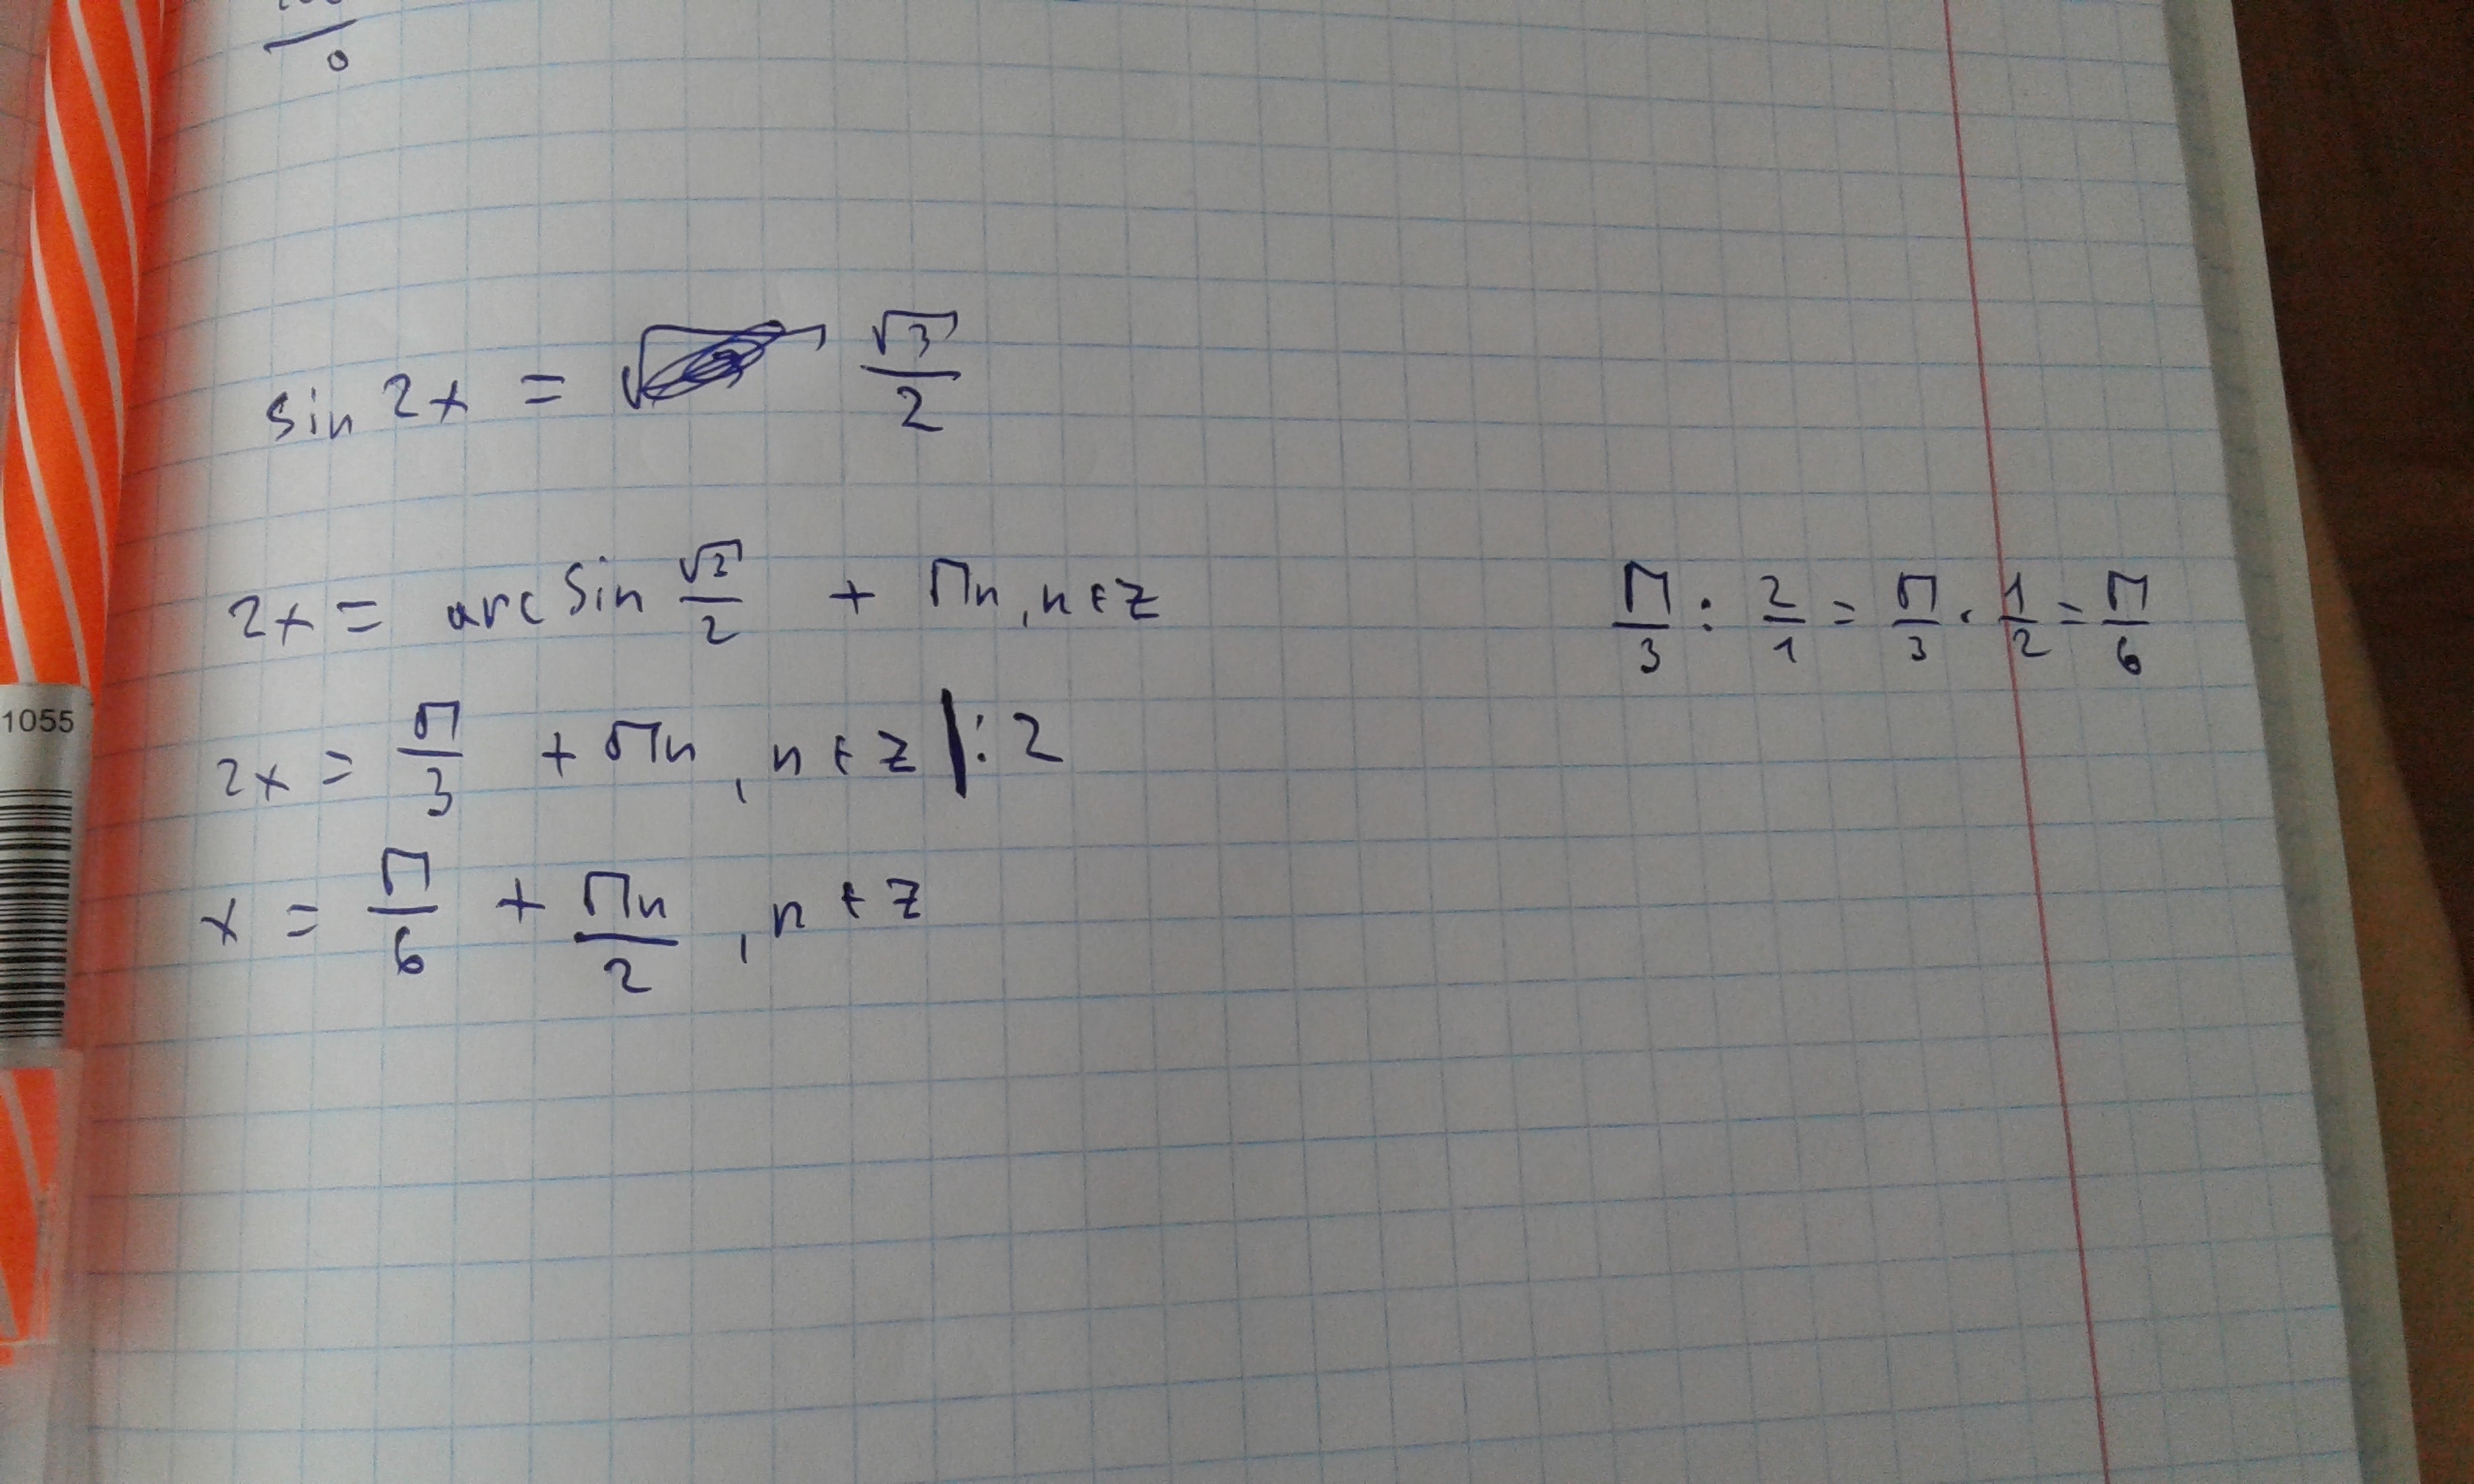 0
sin 2x = √3/2
2x = arcsin √3/2 + Пn, n ∈ Z
П/3 : 2/1 = П/3 · 1/2 = П/6
2x = П/3 + Пn, n ∈ Z | : 2
x = П/6 + Пn/2, n ∈ Z
1055